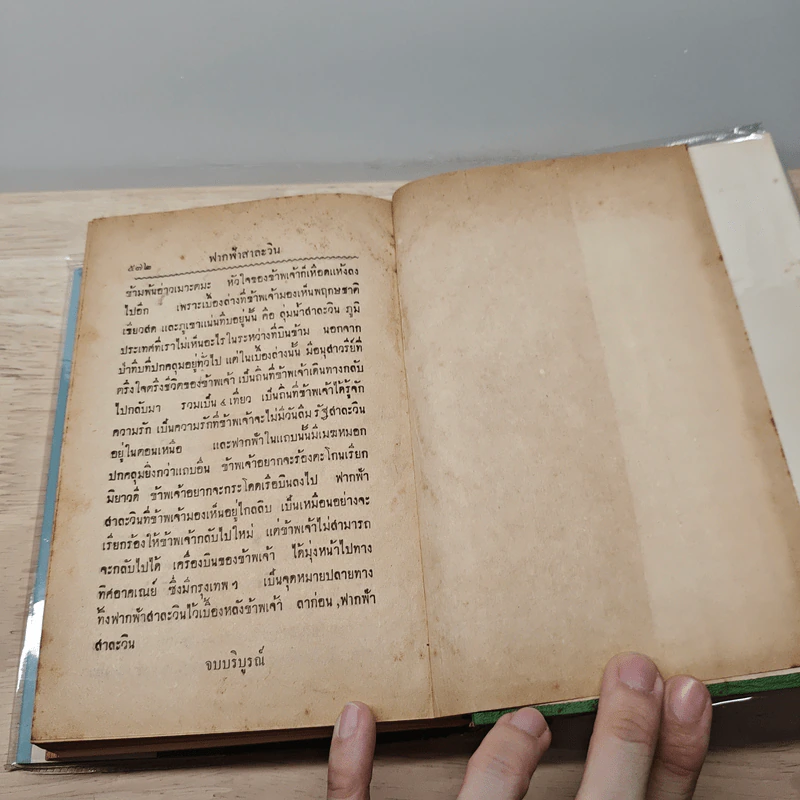 ๕๗๒
ฟากฟ้าสาละวิน
ข้ามพ้นอ่าวเมาะตมะ หัวใจของข้าพเจ้าก็เหือดแห้งลง
ไปอีก เพราะเบื้องล่างที่ข้าพเจ้ามองเห็นพฤกษชาติ
เขียวสด และภูเขาแน่นทึบอยู่นั้น คือ ลุ่มน้ำสาละวิน ภูมิ
ประเทศที่เราไม่เห็นอะไรในระหว่างที่บินข้าม นอกจาก
ป่าทึบที่ปกคลุมอยู่ทั่วไป แต่ในเบื้องล่างนั้น มีอนุสาวรีย์ที่
ตรึงใจตรึงชีวิตของข้าพเจ้า เป็นถิ่นที่ข้าพเจ้าเดินทางกลับ
ไปกลับมา รวมเป็น ๔ เที่ยว เป็นถิ่นที่ข้าพเจ้าได้รู้จัก
ความรัก เป็นความรักที่ข้าพเจ้าจะไม่มีวันลืม รัฐสาละวิน
อยู่ในตอนเหนือ และฟากฟ้าในแถบนั้นมีเมฆหมอก
ปกคลุมยิ่งกว่าแถบอื่น ข้าพเจ้าอยากจะร้องตะโกนเรียก
มิยาวดี ข้าพเจ้าอยากจะกระโดดเรือบินลงไป ฟากฟ้า
สาละวินที่ข้าพเจ้ามองเห็นอยู่ไกลลิบ เป็นเหมือนอย่างจะ
เรียกร้องให้ข้าพเจ้ากลับไปใหม่ แต่ข้าพเจ้าไม่สามารถ
จะกลับไปได้ เครื่องบินของข้าพเจ้า ได้มุ่งหน้าไปทาง
ทิศอาคเณย์ ซึ่งมีกรุงเทพ ฯ เป็นจุดหมายปลายทาง
ทิ้งฟากฟ้าสาละวินไว้เบื้องหลังข้าพเจ้า ลาก่อน , ฟากฟ้า
สาละวิน
จบบริบูรณ์